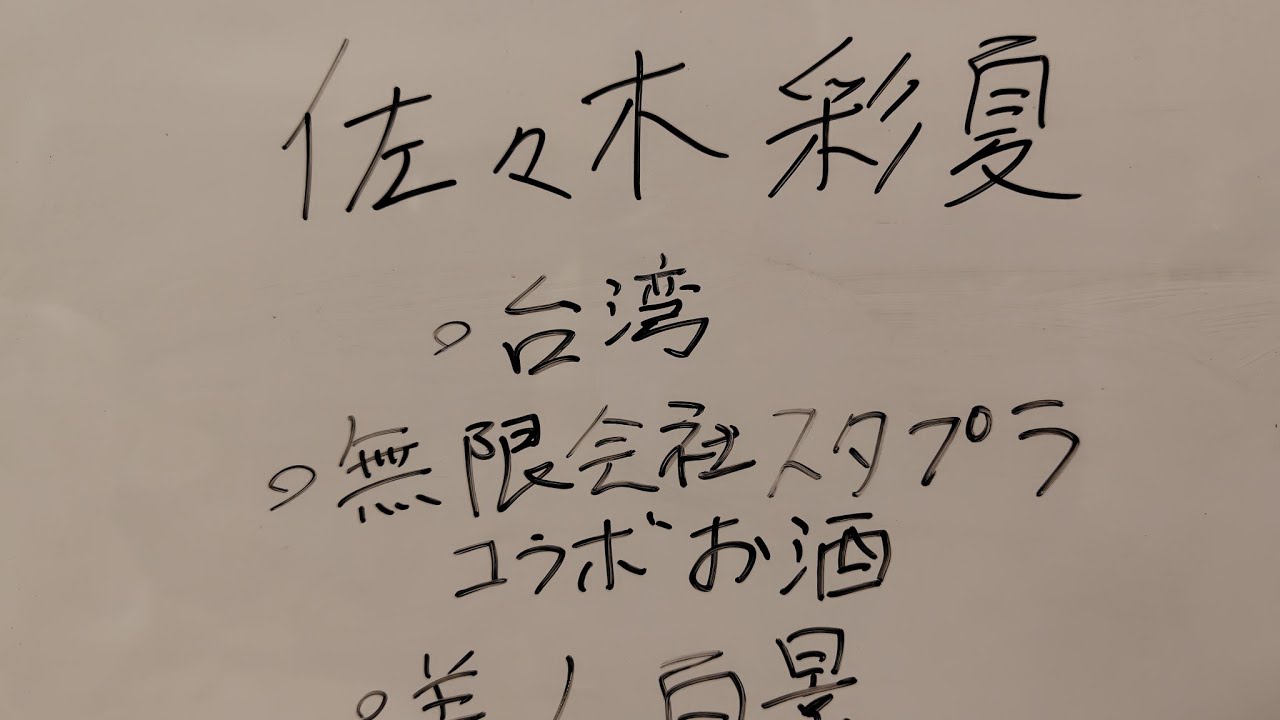 佐々木彩夏
○台湾
○無限会社スタプラ
コラボお酒
○美人百景